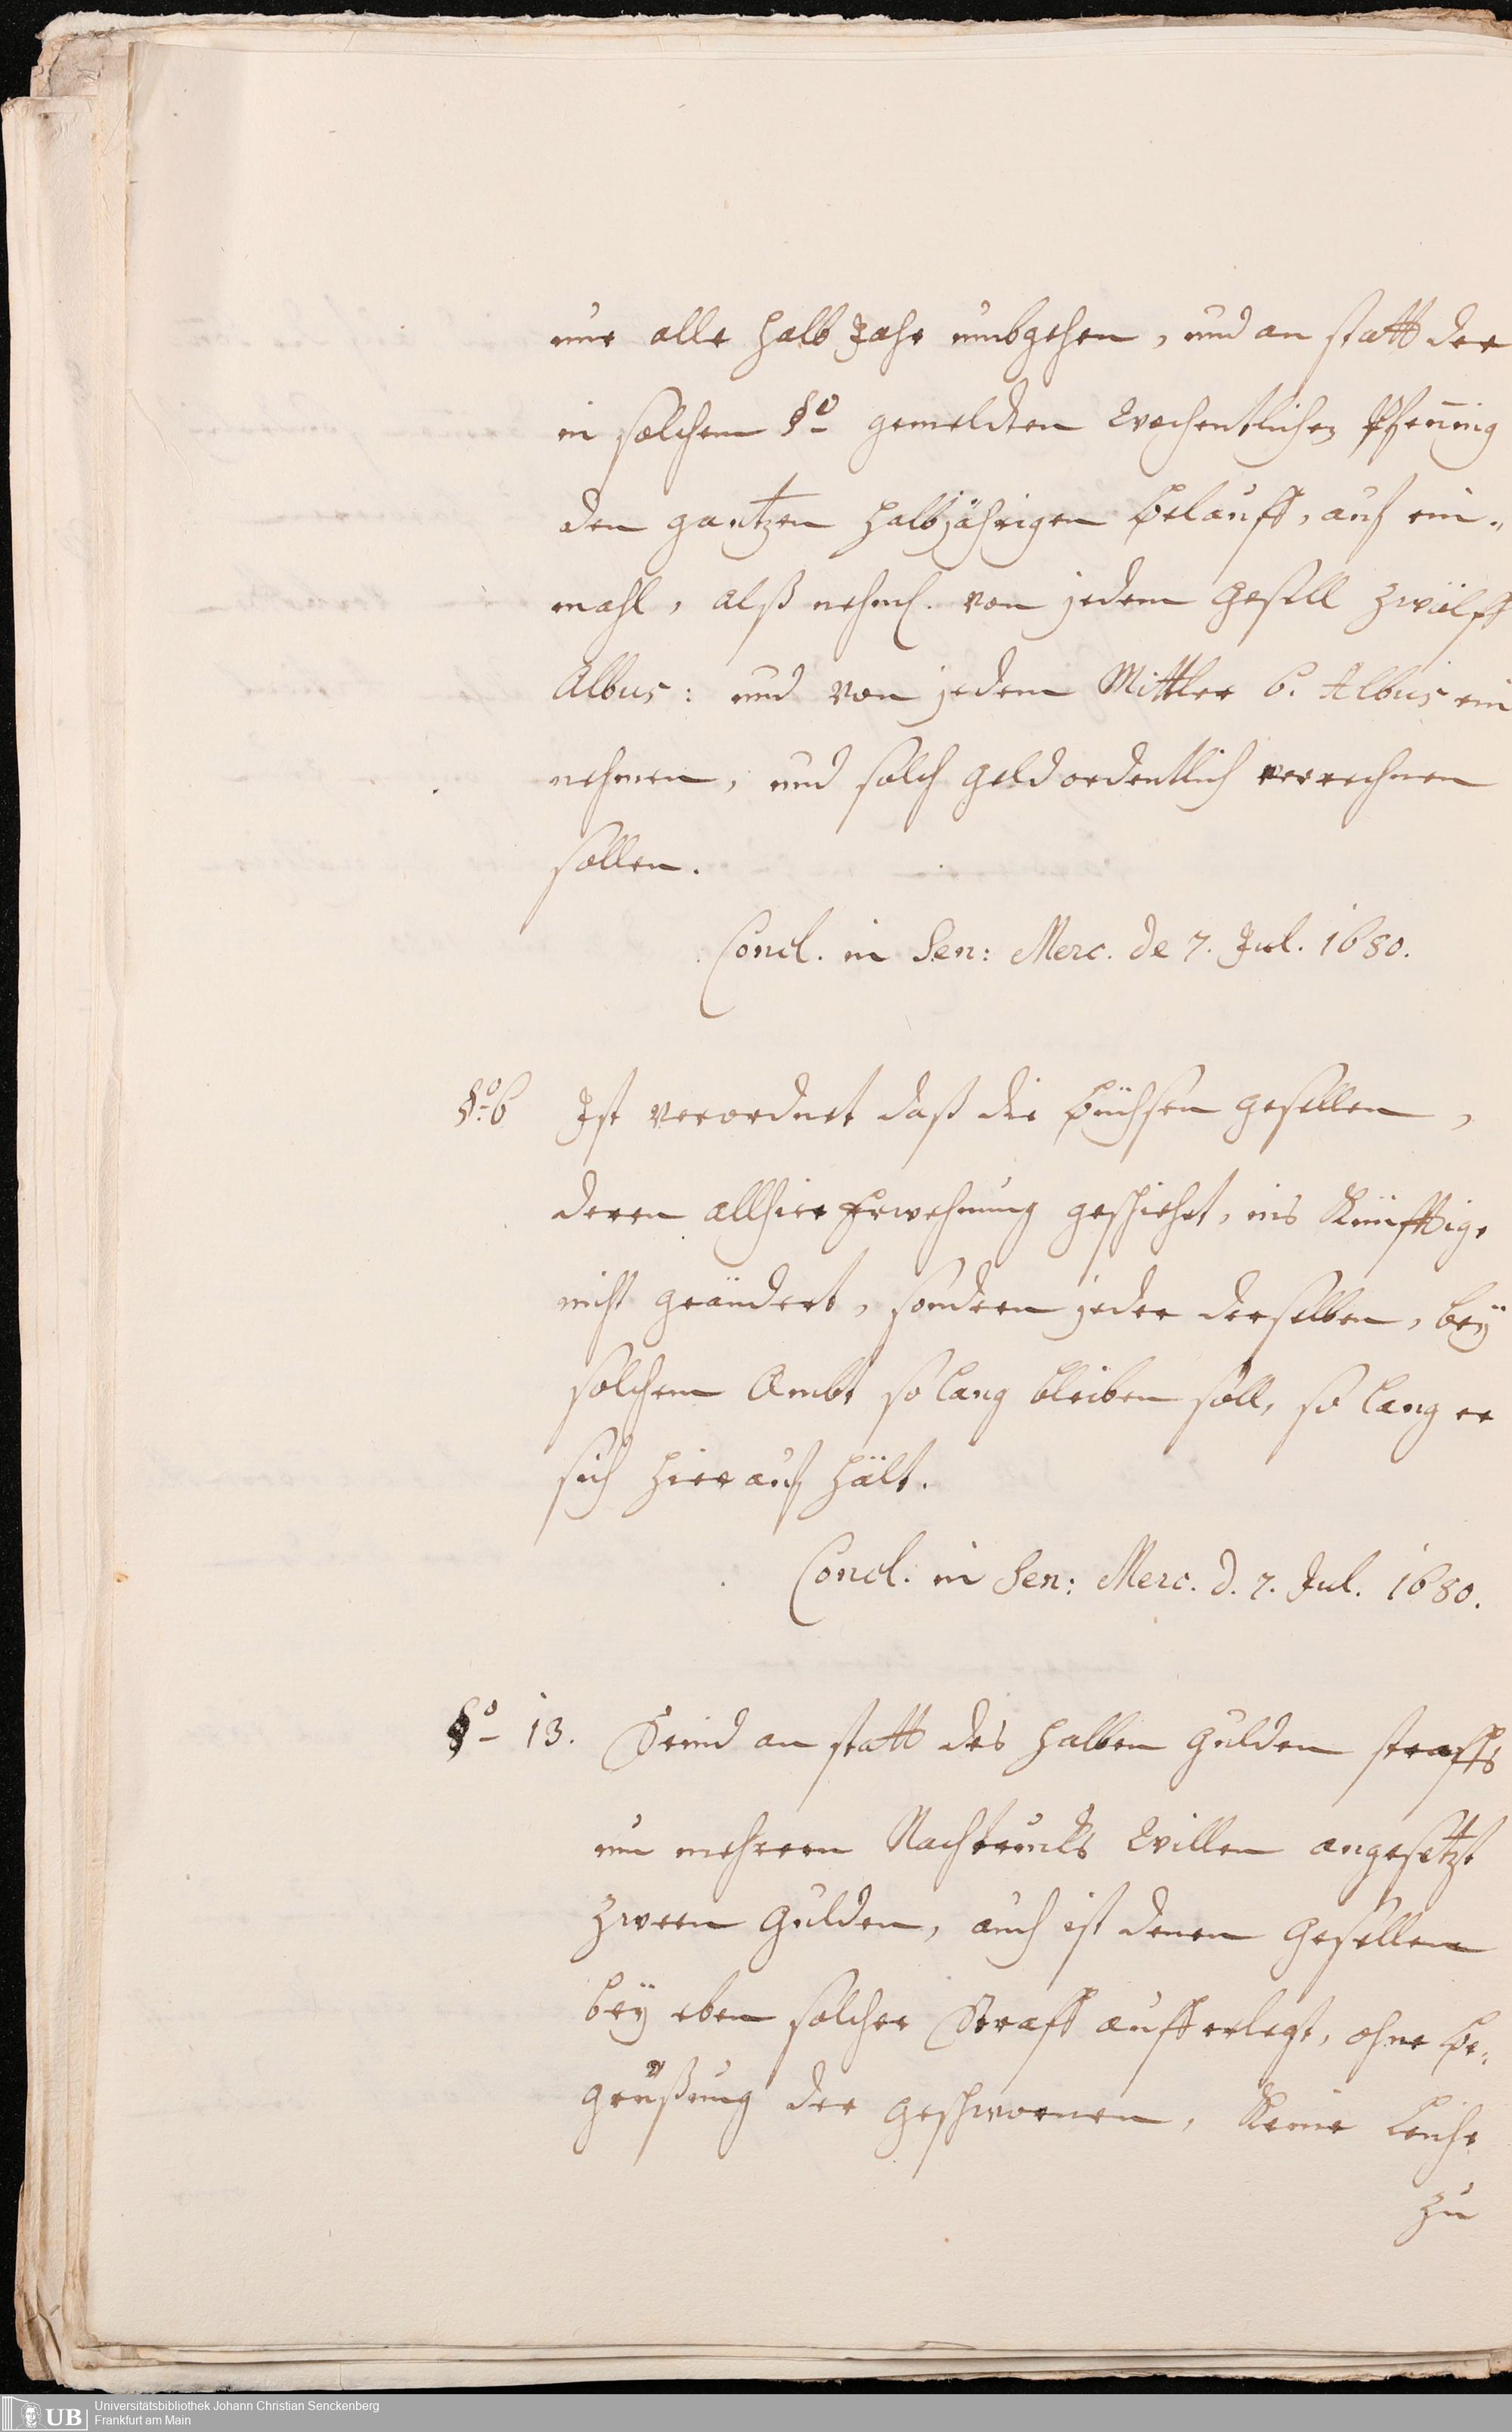 nur alle halb Jahr umbgehen, und an statt der
in solchem §º gemeldten Wochentlichen Pfen̄ing
den gantzen halbjährigen Belauff, auf ein„
mahl, alß nehml. von jedem Gesell zwölff
Albus: und von jedem Mittler 6. Albus ein
nehmen, und solch Geld ordentlich verrechnen
sollen.
Concl. in Sen: Merc. de 7. Jul. 1680.
§º 6 Ist verordnet daß die Büchsen Gesellen,
deren allhier Erwehnung geschiehet, ins Künfftige
nicht geändert, sondern jeder derselben, beÿ
solchem Ambt so lang bleiben soll, so lang er
sich hier auf hält.
Concl. in Sen: Merc. d. 7. Jul. 1680.
§º 13. Seind an statt des halben Gulden straffs
um mehrern Nachtrucks Willen angesetzt
zween Gulden, auch ist denen Gesellen
beÿ eben solcher Straff aufferlegt, ohne Be„
grüßung der Geschwornen, Keine Leiche
zu
UB
Universitätsbibliothek Johann Christian Senckenberg
Frankfurt am Main